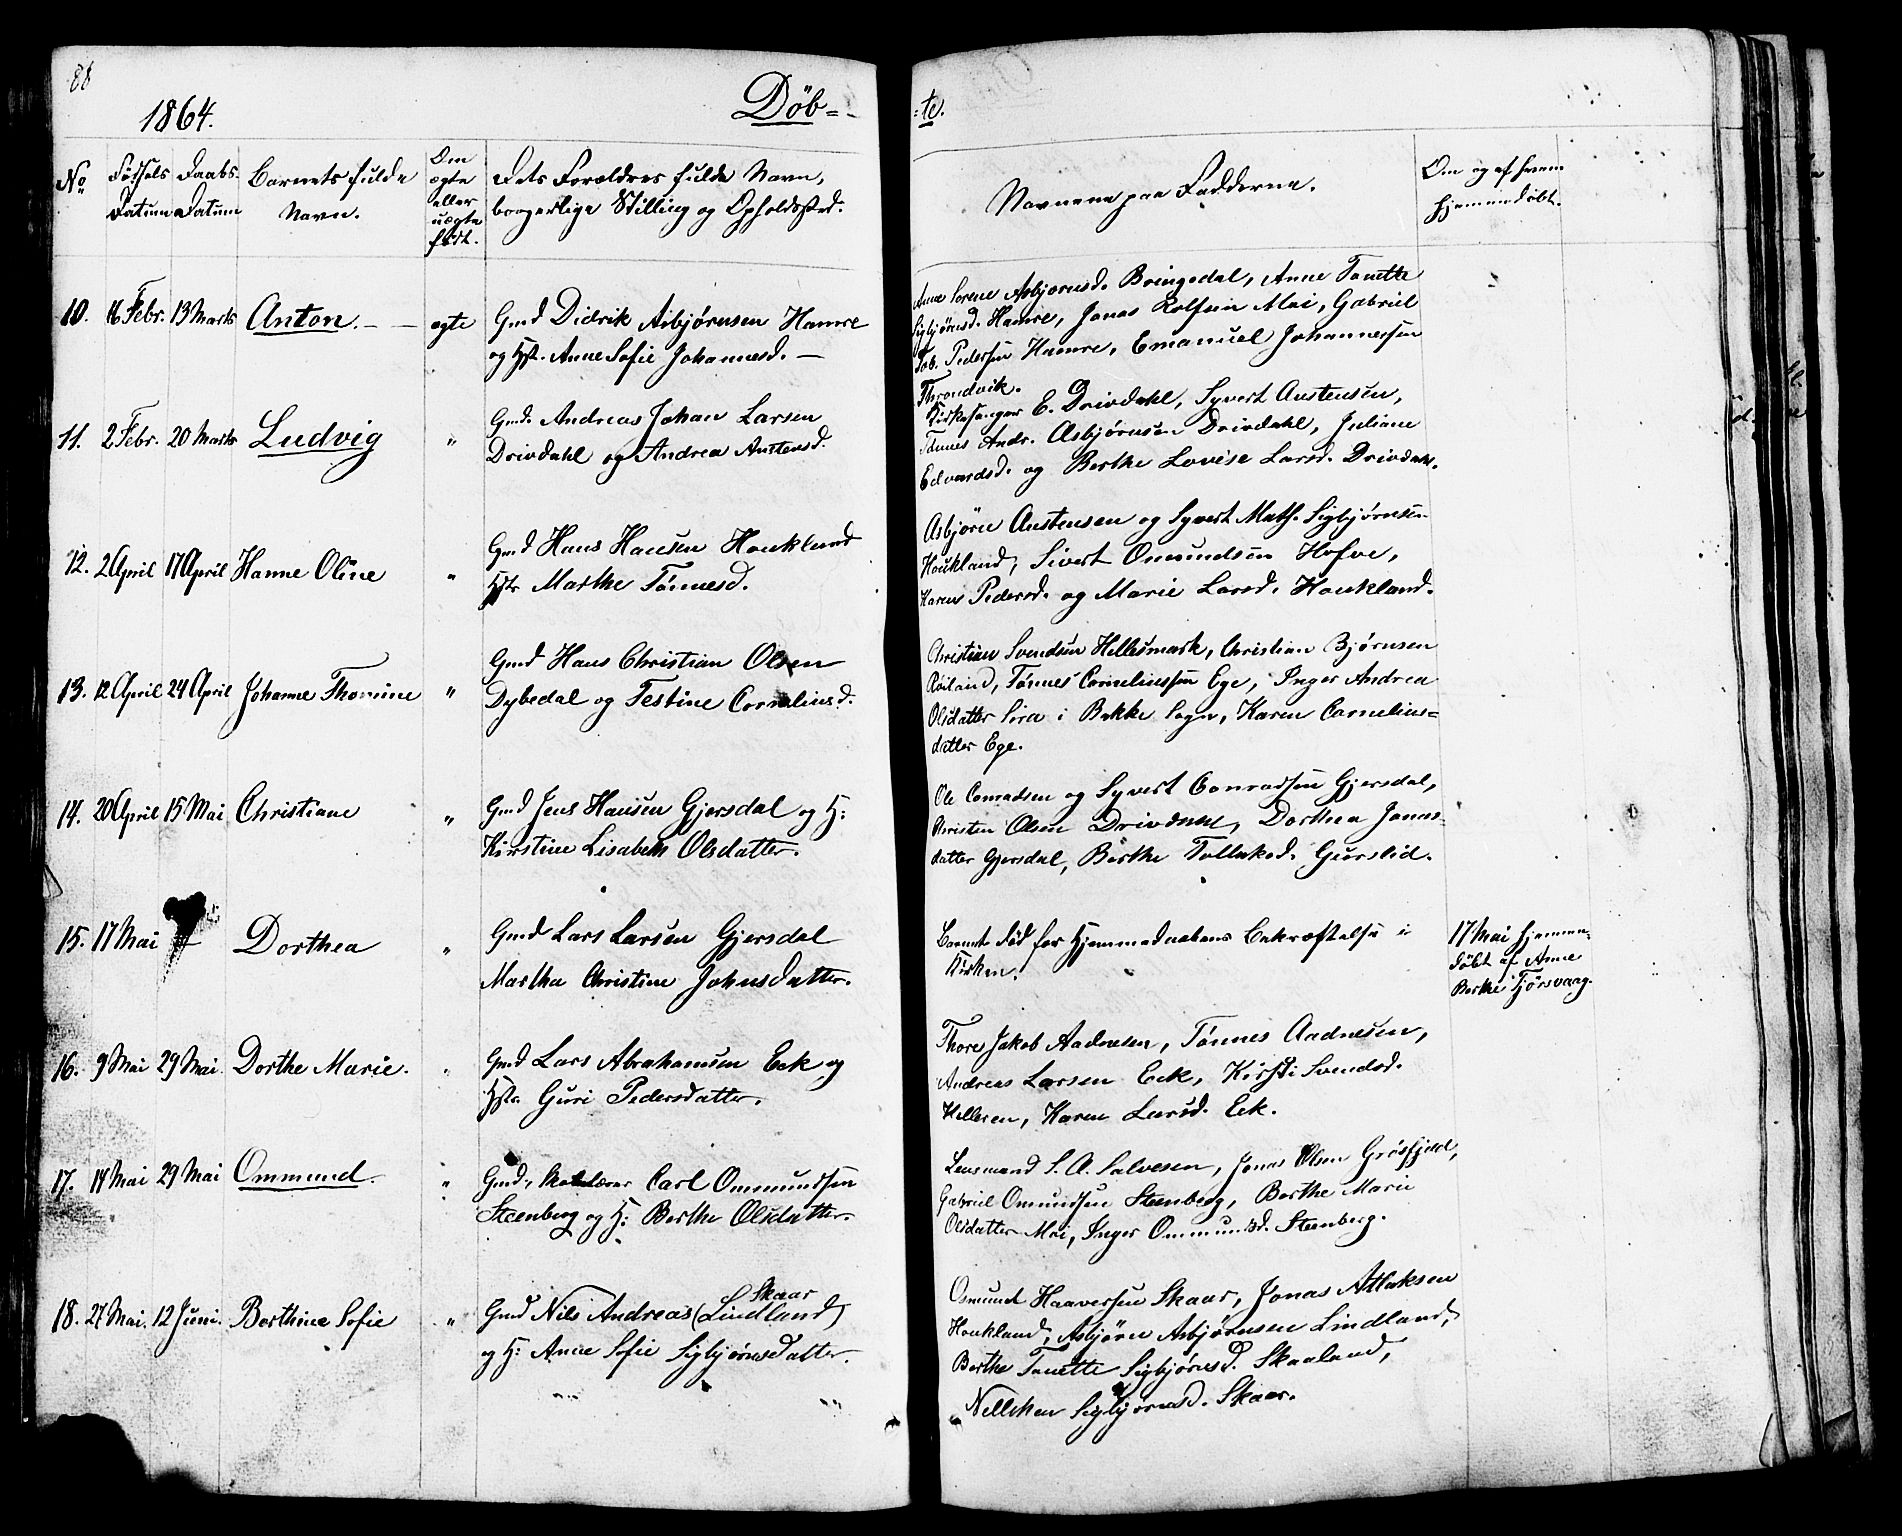 88
1864.
Døb-
-te.
No
Fødsels Datum
Daabs Datum
Barnets fulde Navn.
Om ægte eller uægte født.
Dets Forældres fulde Navn,
borgerlige Stilling og Opholdssted.
Navnene paa Fadderne.
Om og af hvem
hjemmedøbt.
10. 16 Febr. 13 Marts Anton. ægte Gmd Didrik Asbjørnsen Hamre
og Hst. Anne Sofie Johannesd.
Anne Serene Asbjørnsd. Bringedal, Anne Tonette
Sigbjørnsd. Hamre, Jonas Rolfsen Moi, Gabriel
Tob. Pedersen Hamre, Emanuel Johannessen
Throndvik.
11. 2 Febr. 20 Marts Ludvig " Gmd. Andreas Johan Larsen
Drivdahl og Andrea Austensd.
Kirkesanger E. Drivdahl, Syvert Austensen,
Tønnes Andr. Asbjørnsen Drivdahl, Juliane
Edvardsd. og Berthe Lovise Larsd. Drivdahl.
12. 2 April 17 April Hanne Oline " Gmd Hans Hansen Houkland
Hstr Marthe Tønnesd.
Asbjørn Austensen og Syvert Math. Sigbjørnsen
Houkland, Sivert Omundsen Hofve,
Karen Pedersd. og Marie Larsd. Houkland.
13. 12 April 24 April Johanne Thomine " Gmd Hans Christian Olsen
Dybedal og Testine Corneliusd.
Christian Svendsen Hellesmark, Christian Bjørnsen
Røiland, Tønnes Corneliussen Ege, Inger Andrea
Olsdatter Sira i Bakke Sogn, Karen Cornelius-
datter Ege.
14. 20 April 15 Mai Christiane " Gmd Jens Hansen Gjersdal og H:
Kirstine Lisabeth Olsdatter.
Ole Conradsen og Syvert Conradsen Gjersdal,
Christen Olsen Drivdahl, Dorthea Jonas-
datter Gjersdal, Berthe Tollaksd. Guorslid.
15. 17 Mai Dorthea " Gmd Lars Larsen Gjersdal
Martha Christine Johnsdatter.
Barnet død før Hjemmedaabens Bekræftelse i
Kirken.
17 Mai hjemme-
døbt af Anne
Berthe Fjørsvaag.
16. 9 Mai 29 Mai. Dorthe Marie. " Gmd Lars Abrahamsen Eek og
Hstr Guri Pedersdatter.
Thore Jakob Aadnesen, Tønnes Aadnesen,
Andreas Larsen Eek, Kirsti Svendsd.
Helleren, Karen Larsd. Eek.
17. 14 Mai 29 Mai Ommund. " Gmd, Skolelærer Carl Ommundsen
Steenberg og H: Berthe Olsdatter.
Lensmand S. A. Salvesen, Jonas Olsen Grøsfjeld,
Gabriel Omundsen Steenberg, Berthe Marie
Olsdatter Moi, Inger Ommundsd. Steenberg.
18. 27 Mai. 12 Juni. Berthine Sofie " Gmd Nils Andreas (Lindland) Skaar
og H: Anne Sofie Sigbjørnsdatter.
Osmund Haaversen Skaar, Jonas Atlaksen
Houkland, Asbjørn Asbjørnsen Lindland,
Berthe Tonette Sigbjørnsd. Skaaland,
Nelliken Sigbjørnsd. Skaar.